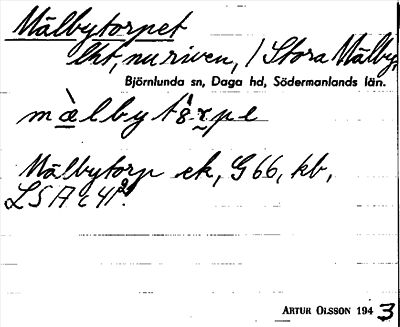 Mälbytorpet
lht, nu riven, / Stora Mälby,
Björnlunda sn, Daga hd, Södermanlands län.
Mälbytorp ek, G 66, kb,
LSA c 41².
ARTUR OLSSON 194 3